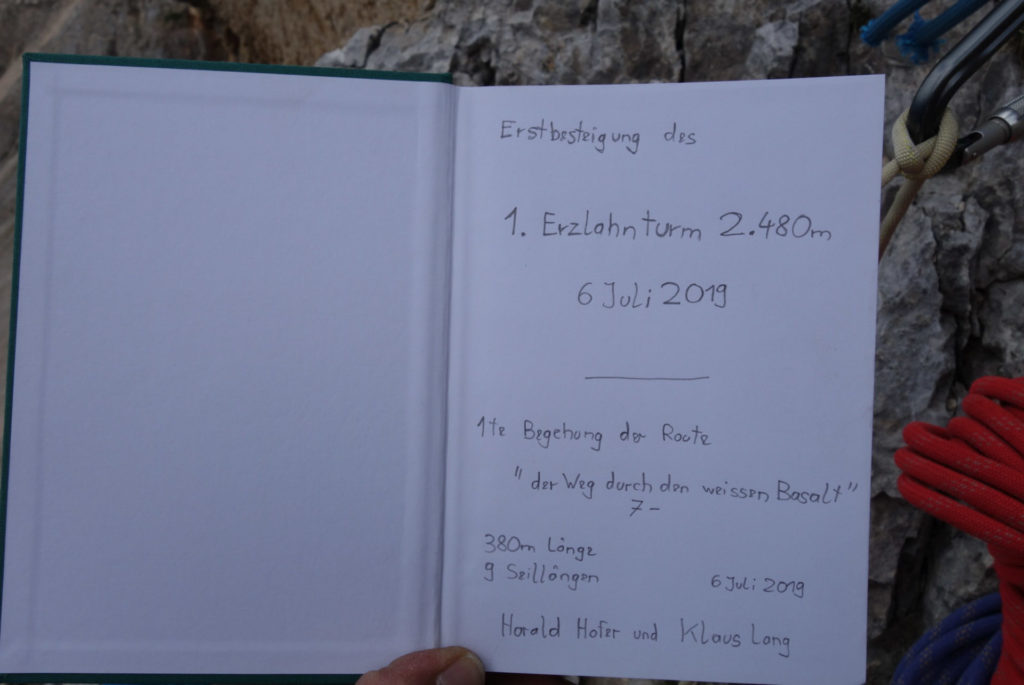 Erstbesteigung des
1. Erzlahnturm 2.480m
6 Juli 2019
1te Begehung der Route
"der Weg durch den weissen Basalt"
7-
380m Länge
9 Seillängen 6 Juli 2019
Harald Hofer und Klaus Lang